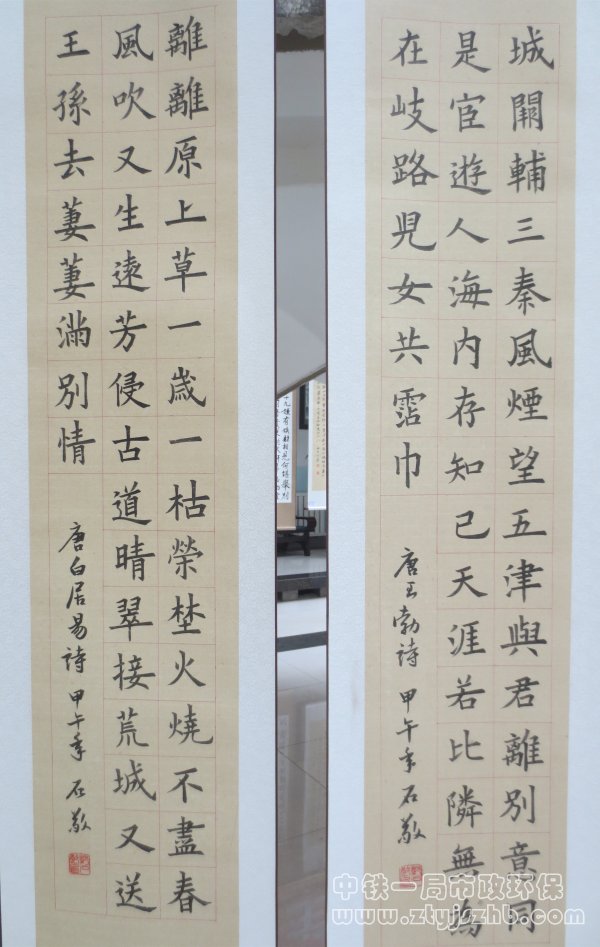 城闕輔三秦風煙望五津與君離別意同
是宦遊人海内存知己天涯若比隣無為
在岐路兒女共霑巾
唐王勃詩 甲午年 石敬
離離原上草一歲一枯榮埜火燒不盡春
風吹又生遠芳侵古道晴翠接荒城又送
王孫去萋萋滿別情
唐白居易詩 甲午年 石敬
中铁一局市政环保
www.ztyjszhb.com